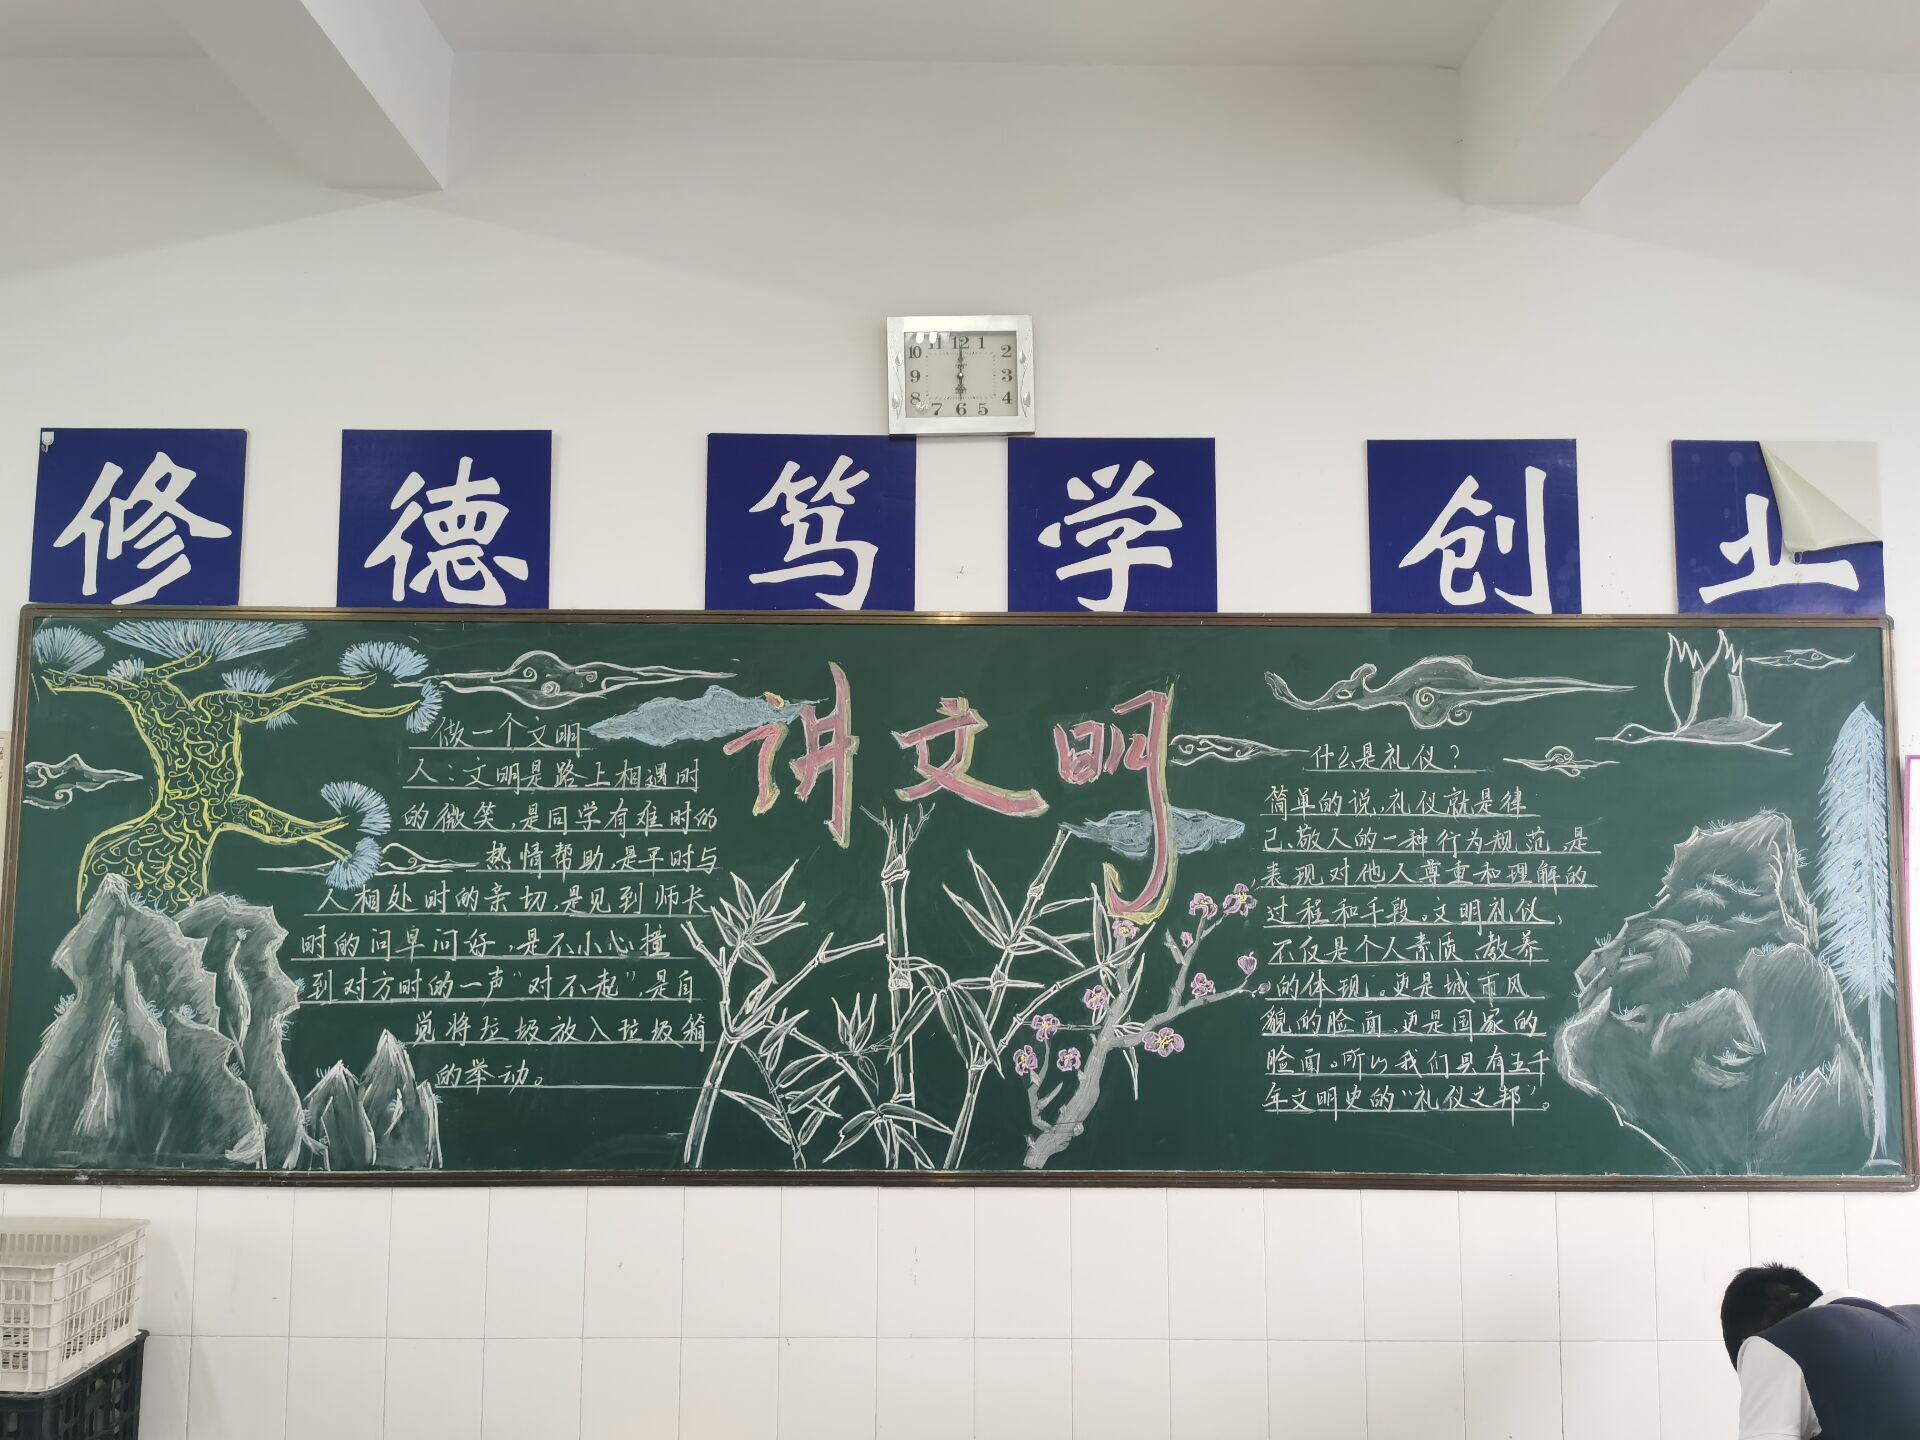 修德笃学创业
讲文明
做一个文明
人：文明是路上相遇时
的微笑，是同学有难时的
热情帮助，是平时与
人相处时的亲切，是见到师长
时的问早问好，是不小心撞
到对方时的一声“对不起”，是自
觉将垃圾放入垃圾箱
的举动。
什么是礼仪？
简单的说，礼仪就是律
己、敬人的一种行为规范，是
表现对他人尊重和理解的
过程和手段。文明礼仪，
不仅是个人素质、教养
的体现。更是城市风
貌的脸面，更是国家的
脸面。所以我们具有五千
年文明史的“礼仪之邦”。
10 11 12 1 2 3 4 5 6 7 8 9